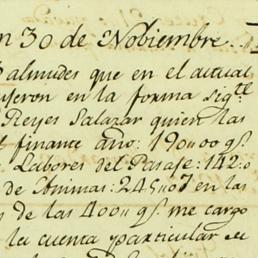 n 30 de Nobiembre
almudes que en el actual
uyeron en la forma sigte
Reyes Salazar quien las
l finante año: 190,,00 gs.
Labores del Pasaje: 142:0
de Animas: 245,,07 en las
s de las 400,, gs. me cargo
la cuenta particular de